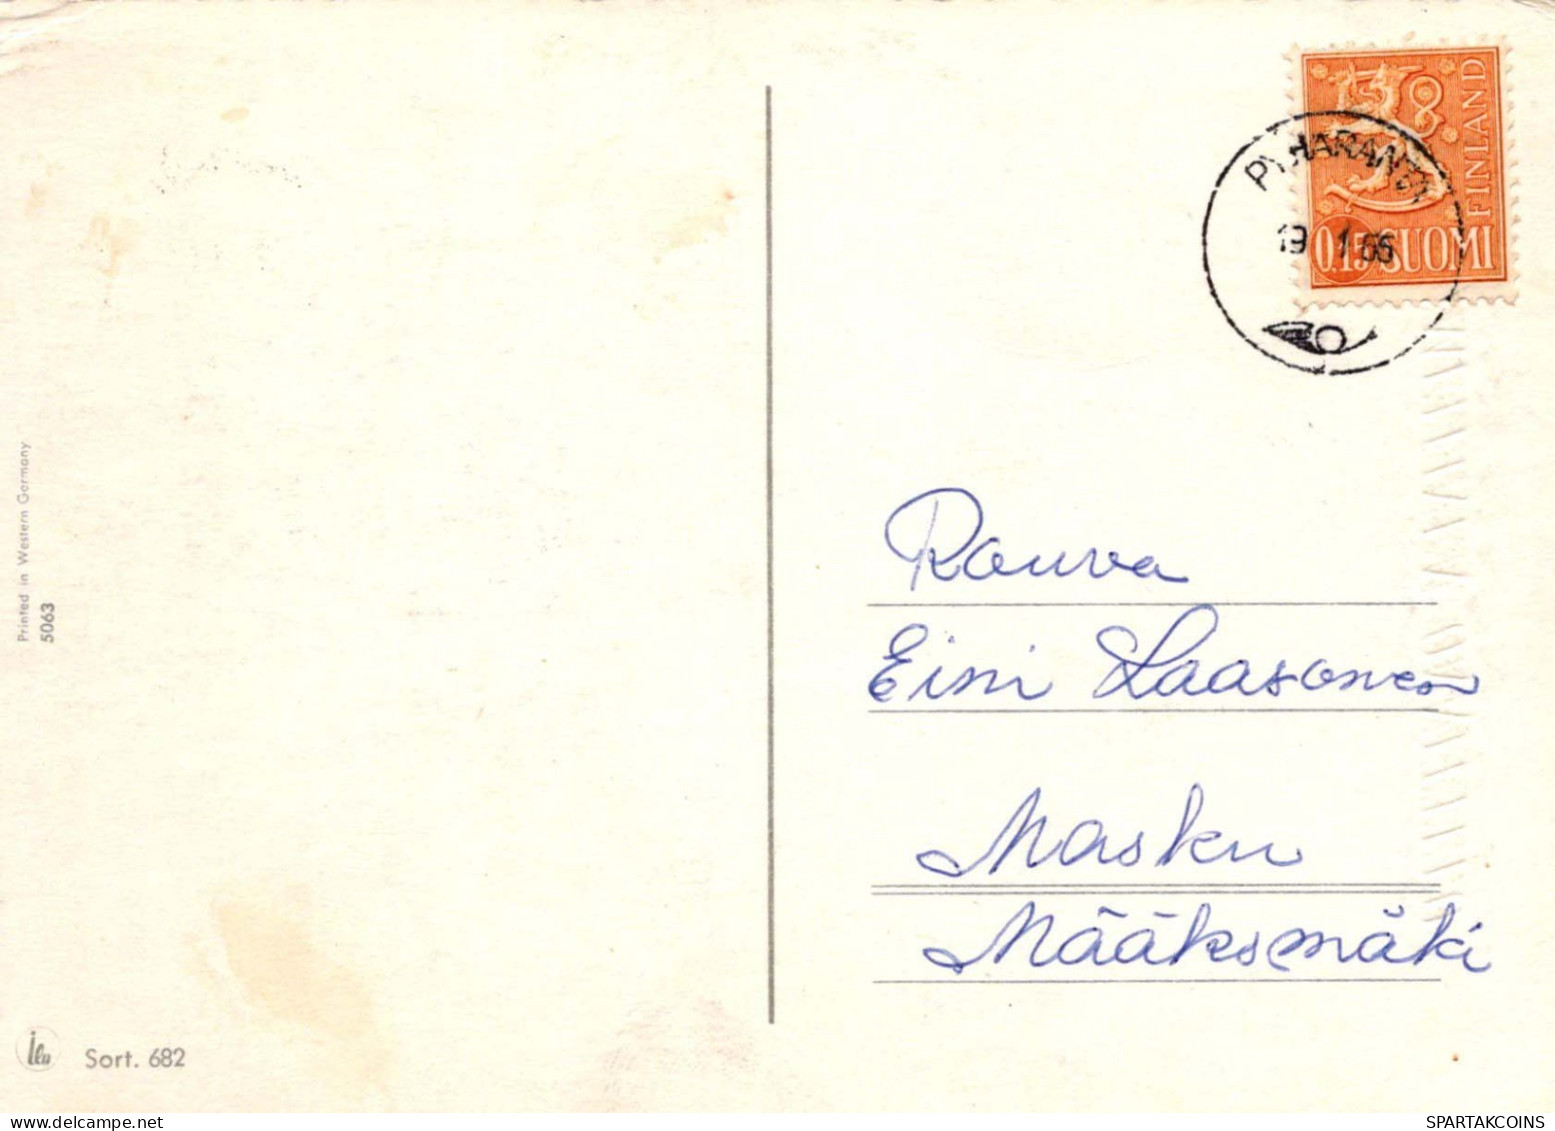 FINLAND
0.15 SUOMI
PYHÄRANTA
19 1.66
Rouva
Eini Laasonen
Masku
Määksmäki
Printed in Western Germany
5063
ilu
Sort. 682
SPARTAKCOINS